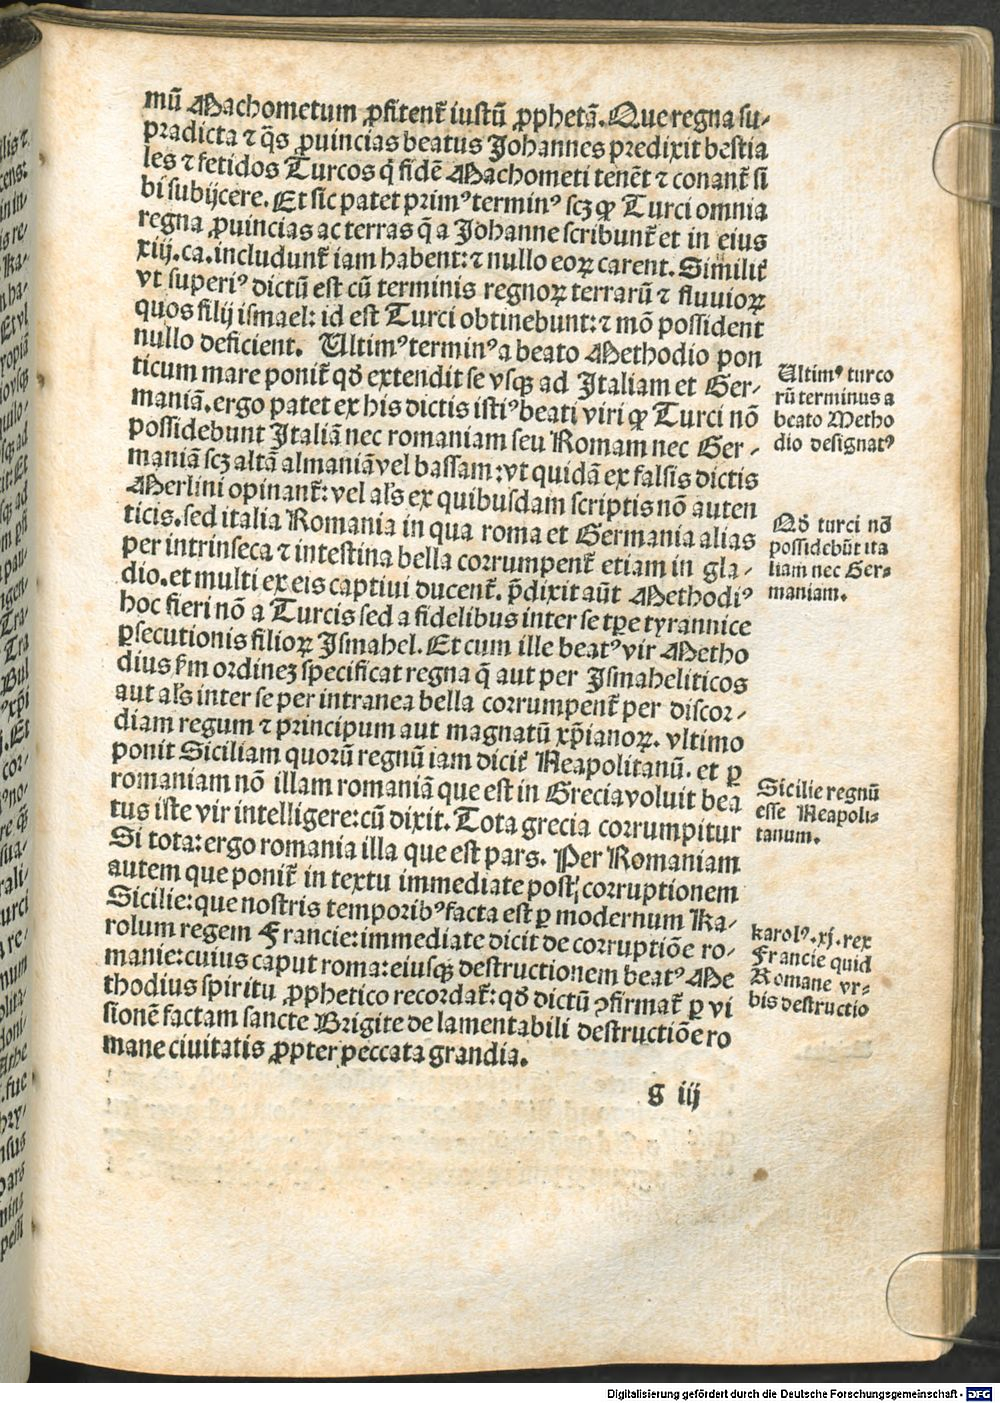 mū Machometum ꝓfitent᷑ iustū ꝓphetā. Que regna su⸗
pradicta ⁊ q̄s ꝓuincias beatus Johannes predixit bestia
les ⁊ fetidos Turcos q̄ fidē Machometi tenēt ⁊ conant᷑ si
bi subijcere. Et sic patet primꝰ terminꝰ scꝫ ꝙ Turci omnia
regna ꝓuincias ac terras q̄ a Johanne scribunt᷑ et in eius
xiij. ca. includunt᷑ iam habent: ⁊ nullo eoꝝ carent. Similit᷑
vt superiꝰ dictū est cū terminis regnoꝝ terrarū ⁊ fluuioꝝ
quos filij ismael: id est Turci obtinebunt: ⁊ mō possident
nullo deficient. Ultimꝰ terminꝰ a beato Methodio pon
ticum mare ponit᷑ qd̄ extendit se vsqꝫ ad Italiam et Ger⸗
maniā. ergo patet ex his dictis istiꝰ beati viri ꝙ Turci nō
possidebunt Italiā nec romaniam seu Romam nec Ger⸗
maniā scꝫ altā almaniā vel bassam: vt quidā ex falsis dictis
Merlini opinant᷑: vel al̄s ex quibusdam scriptis nō auten
ticis. sed italia Romania in qua roma et Germania alias
per intrinseca ⁊ intestina bella corrumpent᷑ etiam in gla⸗
dio. et multi ex eis captiui ducent᷑. p̄dixit aūt Methodiꝰ
hoc fieri nō a Turcis sed a fidelibus inter se tꝑe tyrannice
ꝑsecutionis filioꝝ Ismahel. Et cum ille beatꝰ vir Metho
dius ẜm ordinez specificat regna q̄ aut per Ismaheliticos
aut al̄s inter se per intranea bella corrumpent᷑ per discor⸗
diam regum ⁊ principum aut magnatū xp̄ianoꝝ. vltimo
ponit Siciliam quorū regnū iam dicit᷑ Neapolitanū. et ꝑ
romaniam nō illam romaniā que est in Grecia voluit bea
tus iste vir intelligere: cū dixit. Tota grecia corrumpitur
Si tota: ergo romania illa que est pars. Per Romaniam
autem que ponit᷑ in textu immediate post corruptionem
Sicilie: que nostris temporibꝰ facta est ꝑ modernum Ka⸗
rolum regem Francie: immediate dicit de corruptiōe ro⸗
manie: cuius caput roma: eiusqꝫ destructionem beatꝰ Me
thodius spiritu ꝓphetico recordat᷑: qd̄ dictū ꝯfirmat᷑ ꝑ vi
sionē factam sancte Brigite de lamentabili destructiōe ro
mane ciuitatis ꝓpter peccata grandia.
g iij
Ultimꝰ turco
rū terminus a
beato Metho
dio designatꝰ
Qd̄ turci nō
possidebūt ita
liam nec Ger⸗
maniam.
Sicilie regnū
esse Neapoli⸗
tanum.
karolꝰ. xj. rex
Francie quid
Romane vr⸗
bis destructio
Digitalisierung gefördert durch die Deutsche Forschungsgemeinschaft - DFG